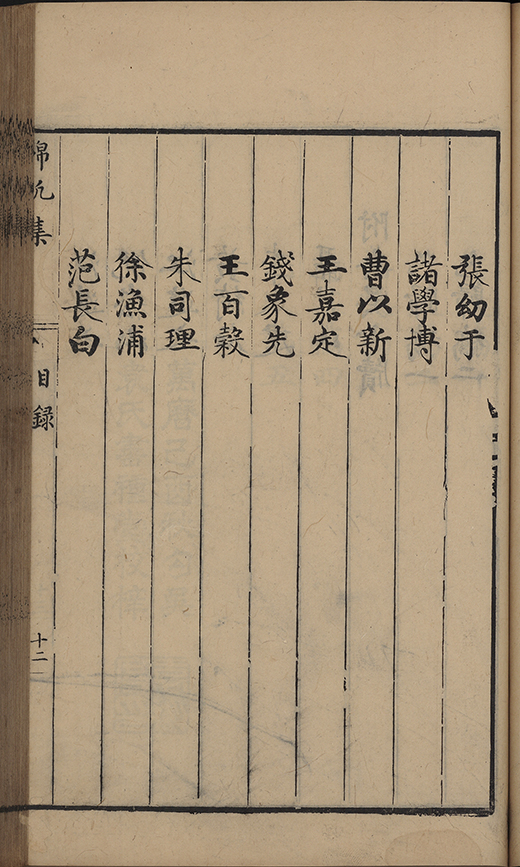 張幼于
諸學博
曹以新
王嘉定
錢象先
王百穀
朱司理
徐漁浦
范長白
錦帆集
目錄
十二